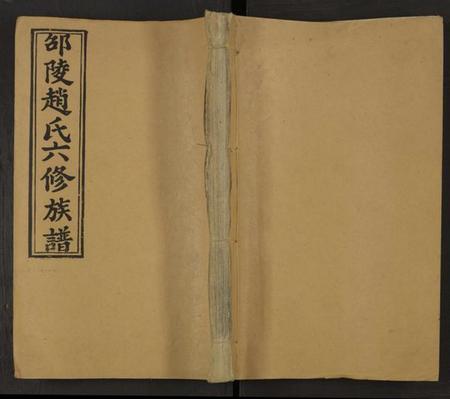 邵陵趙氏六修族譜